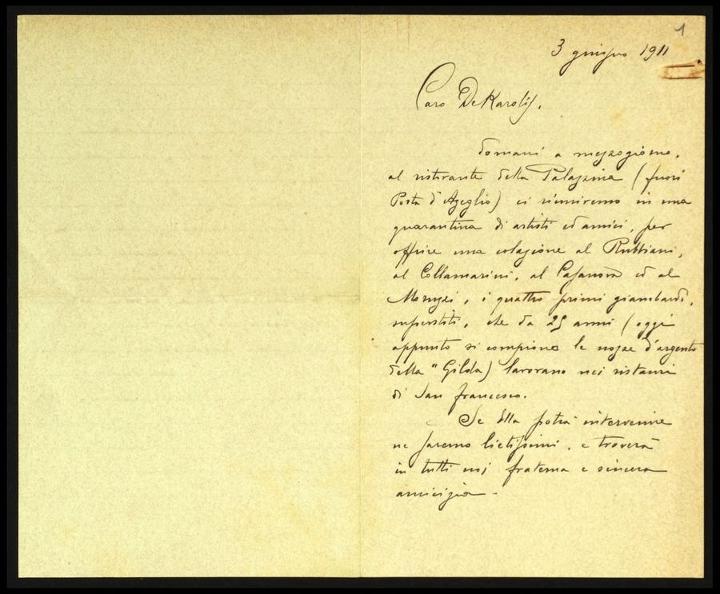 1
3 giugno 1911
Caro De Karolis,
domani a mezzogiorno,
al ristorante della Palazzina (fuori
Porta d'Azeglio) ci riuniremo in una
quarantina di artisti ed amici, per
offrire una colazione al Rubbiani,
al Collamarini, al Casanova ed al
i quattro primi
superstiti, che da 25 anni (oggi
appunto si compiono le nozze d'argento
della "Gilda) lavorano nei restauri
di San Francesco.
Se Ella potrà intervenire
ne saremo lietissimi, e troverà
in tutti noi fraterna e sincera
amicizia -